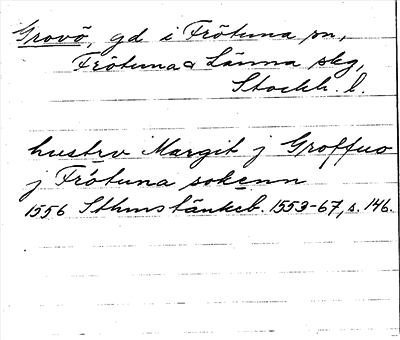 Grovö, gd i Frötuna sn,
Frötuna & Länna skg,
Stockh. l.
hustrv Margit j Groffuo
j Frötuna sokenn
1556 Sthmstänkeb. 1553-67, s. 146.